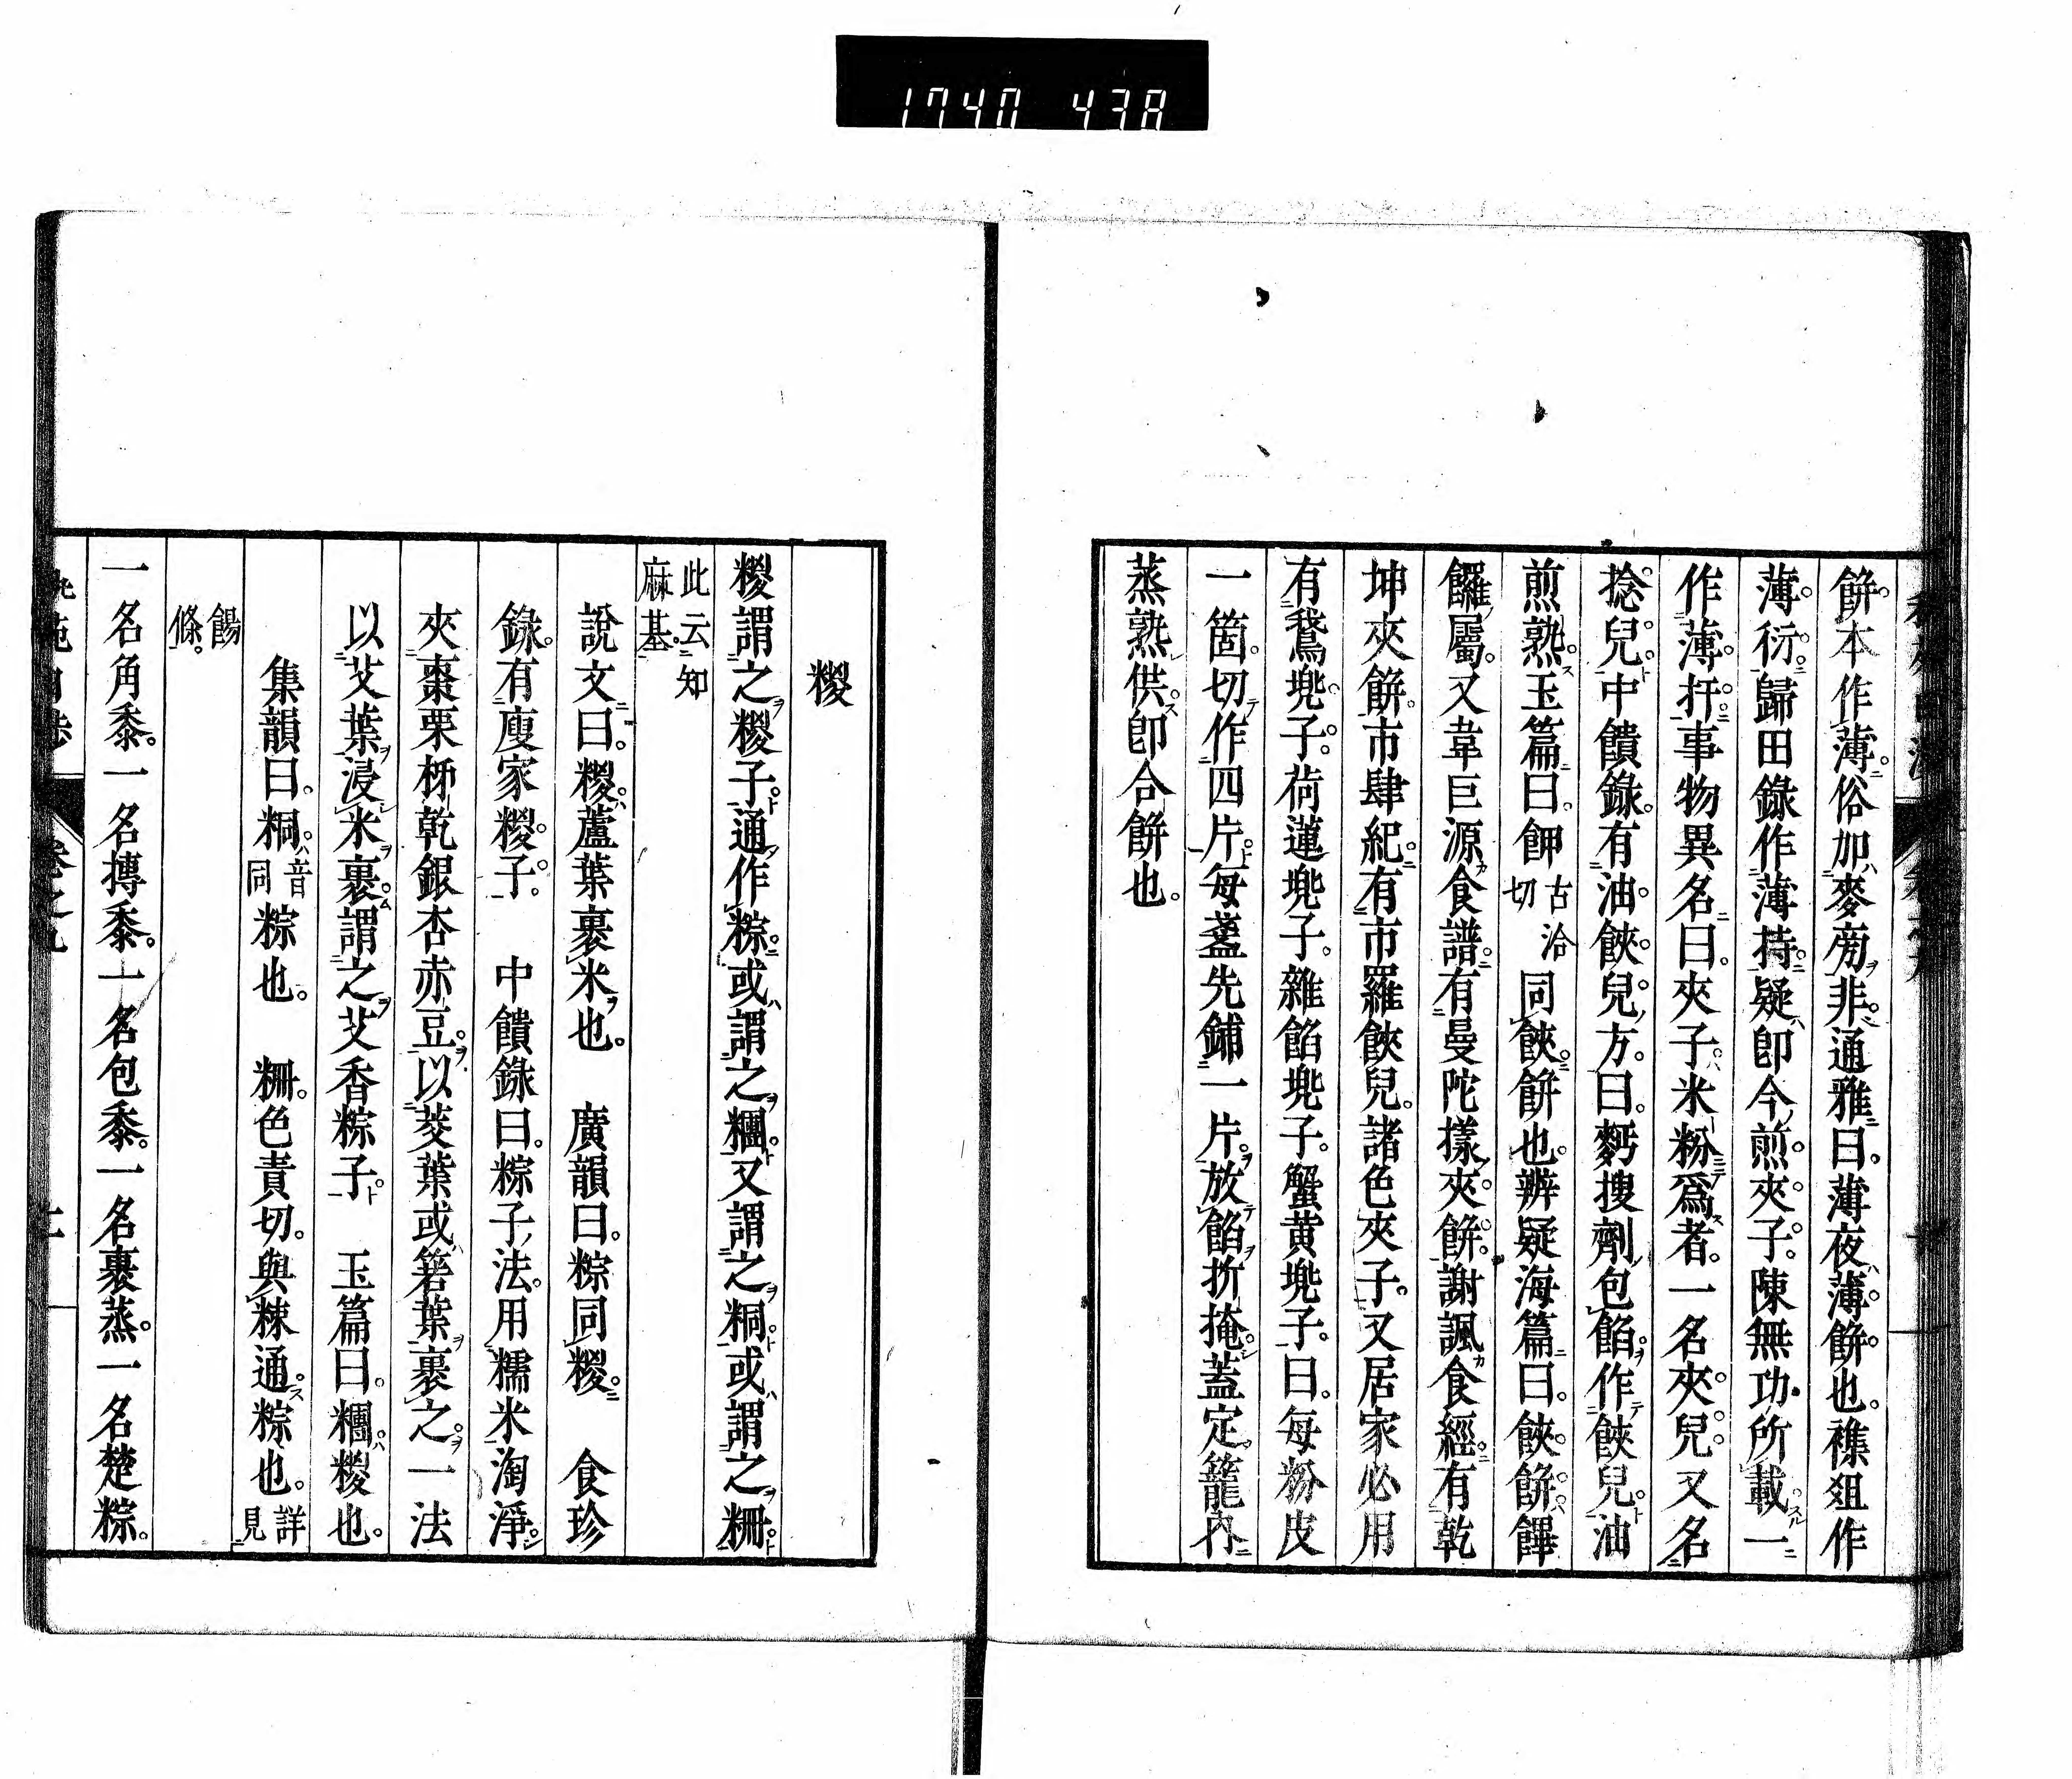 1740 438
餠本作薄俗加麥旁非通雅曰薄夜薄餠也襍爼作
薄衍歸田錄作薄持疑卽今煎夾子陳無功所載一
作薄扞事物異名曰夾子米粉爲者一名夾兒又名
捻兒中饋錄有油餃兒方曰麪搜劑包餡作餃兒油
煎熟玉篇曰飿古洽切同餃餠也辨疑海篇曰餃餠饆
饠屬又韋巨源食譜有曼陀樣夾餠謝諷食經有乾
坤夾餠市肆紀有市羅餃兒諸色夾子又居家必用
有鵞兠子荷蓮兠子雜餡兠子蟹黄兠子曰每粉皮
一箇切作四片每盞先鋪一片放餡折掩蓋定籠內
蒸熟供卽合餠也
糉
糉謂之糉子通作粽或謂之糰又謂之粡或謂之粣
此云知麻基
說文曰糉蘆葉裹米也 廣韻曰粽同糉 食珍
錄有廋家糉子 中饋錄曰粽子法用糯米淘淨
夾棗栗柹乾銀杏赤豆以茭葉或箬葉裹之一法
以艾葉浸米裹謂之艾香粽子 玉篇曰糰糉也
集韻曰粡音同粽也 粣色責切與粖通粽也詳見
餳條
一名角黍一名摶黍一名包黍一名裹蒸一名楚粽
卷之九